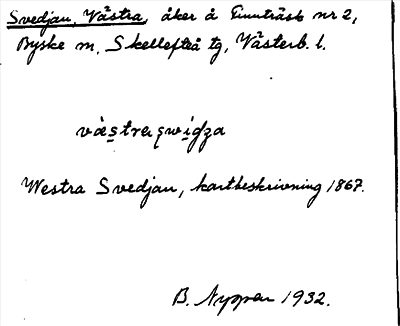 Svedjan, Västra, åker å Finnträsk nr 2,
Byske sn, Skellefteå tg, Västerb. l.
Westra Svedjan, kartbeskrivning 1867.
B. Nygren 1932.